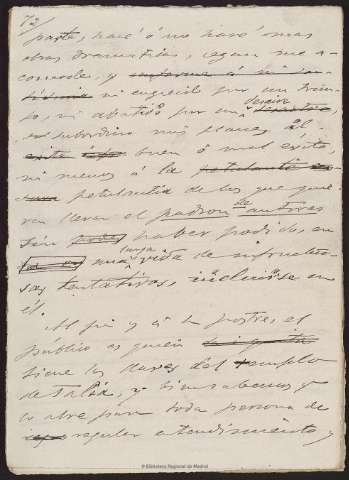 72
parte, haré ó no haré mas
obras dramaticas, segun me a-
comode, y
ni engreido por un triun-
fo, ni abatido por una desaire
subordino mis planes al
buen ó mal exito,
ni menos á la
petulantia de los que quie-
ren llevar el padron de autores
sin haber podido, en
una larga vida de infructuo-
sas tentativas, incluirse en
él.
Al fin y á la postre, el
público es quien
tiene las llaves del templo
de Talía, y bien sabemos q
lo abre para toda persona de
regular entendimiento y
© Biblioteca Regional de Madrid